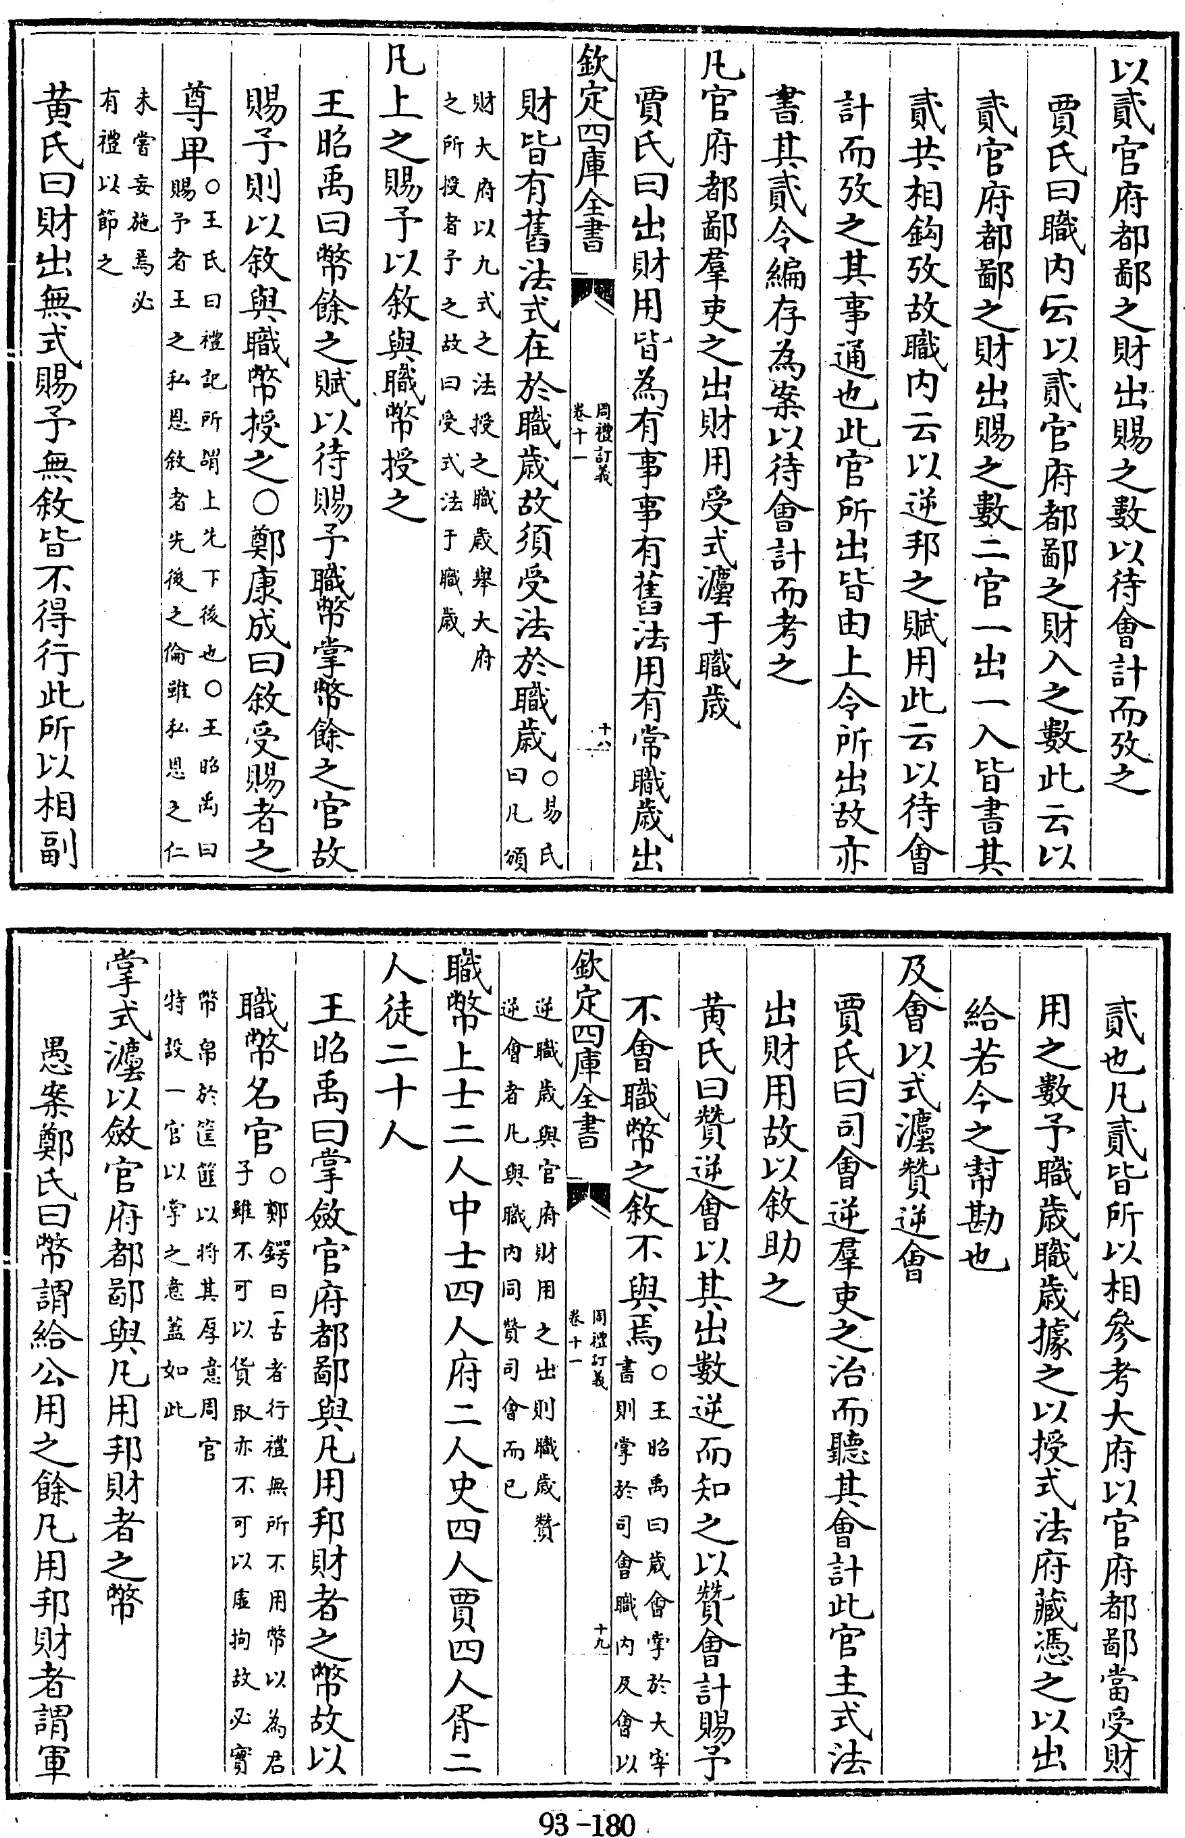 以貳官府都鄙之財出賜之數以待會計而攷之
賈氏曰職内云以貳官府都鄙之財入之數此云以
貳官府都鄙之財出賜之數二官一出一入皆書其
貳共相鈎攷故職内云以逆邦之賦用此云以待會
計而攷之其事通也此官所出皆由上令所出故亦
書其貳令編存為案以待會計而考之
凡官府都鄙羣吏之出財用受式灋于職歲
賈氏曰出財用皆為有事事有舊法用有常職歲出
欽定四庫全書
周禮訂義
卷十一
十八
財皆有舊法式在於職歲故須受法於職歲○易氏
曰凡頒
財大府以九式之法授之職歲舉大府
之所授者予之故曰受式法于職歲
凡上之賜予以敘與職幣授之
王昭禹曰幣餘之賦以待賜予職幣掌幣餘之官故
賜予則以敘與職幣授之○鄭康成曰敘受賜者之
尊卑○王氏曰禮記所謂上先下後也○王昭禹曰
賜予者王之私恩敘者先後之倫雖私恩之仁
未嘗妄施焉必
有禮以節之
黄氏曰財出無式賜予無敘皆不得行此所以相副
貳也凡貳皆所以相參考大府以官府都鄙當受財
用之數予職歲職歲據之以授式法府藏憑之以出
給若今之幇勘也
及會以式灋贊逆會
賈氏曰司會逆羣吏之治而聽其會計此官主式法
出財用故以敘助之
黄氏曰贊逆會以其出數逆而知之以贊會計賜予
不會職幣之敘不與焉○王昭禹曰歲會掌於大宰
書則掌於司會職内及會以
欽定四庫全書
周禮訂義
卷十一
十九
逆職歲與官府財用之出則職歲贊
逆會者凡與職内同贊司會而已
職幣上士二人中士四人府二人史四人賈四人胥二
人徒二十人
王昭禹曰掌斂官府都鄙與凡用邦財者之幣故以
職幣名官○鄭鍔曰古者行禮無所不用幣以為君
子雖不可以貨取亦不可以虛拘故必實
幣帛於筐篚以將其厚意周官
特設一官以掌之意蓋如此
掌式灋以斂官府都鄙與凡用邦財者之幣
愚案鄭氏曰幣謂給公用之餘凡用邦財者謂軍
93-180